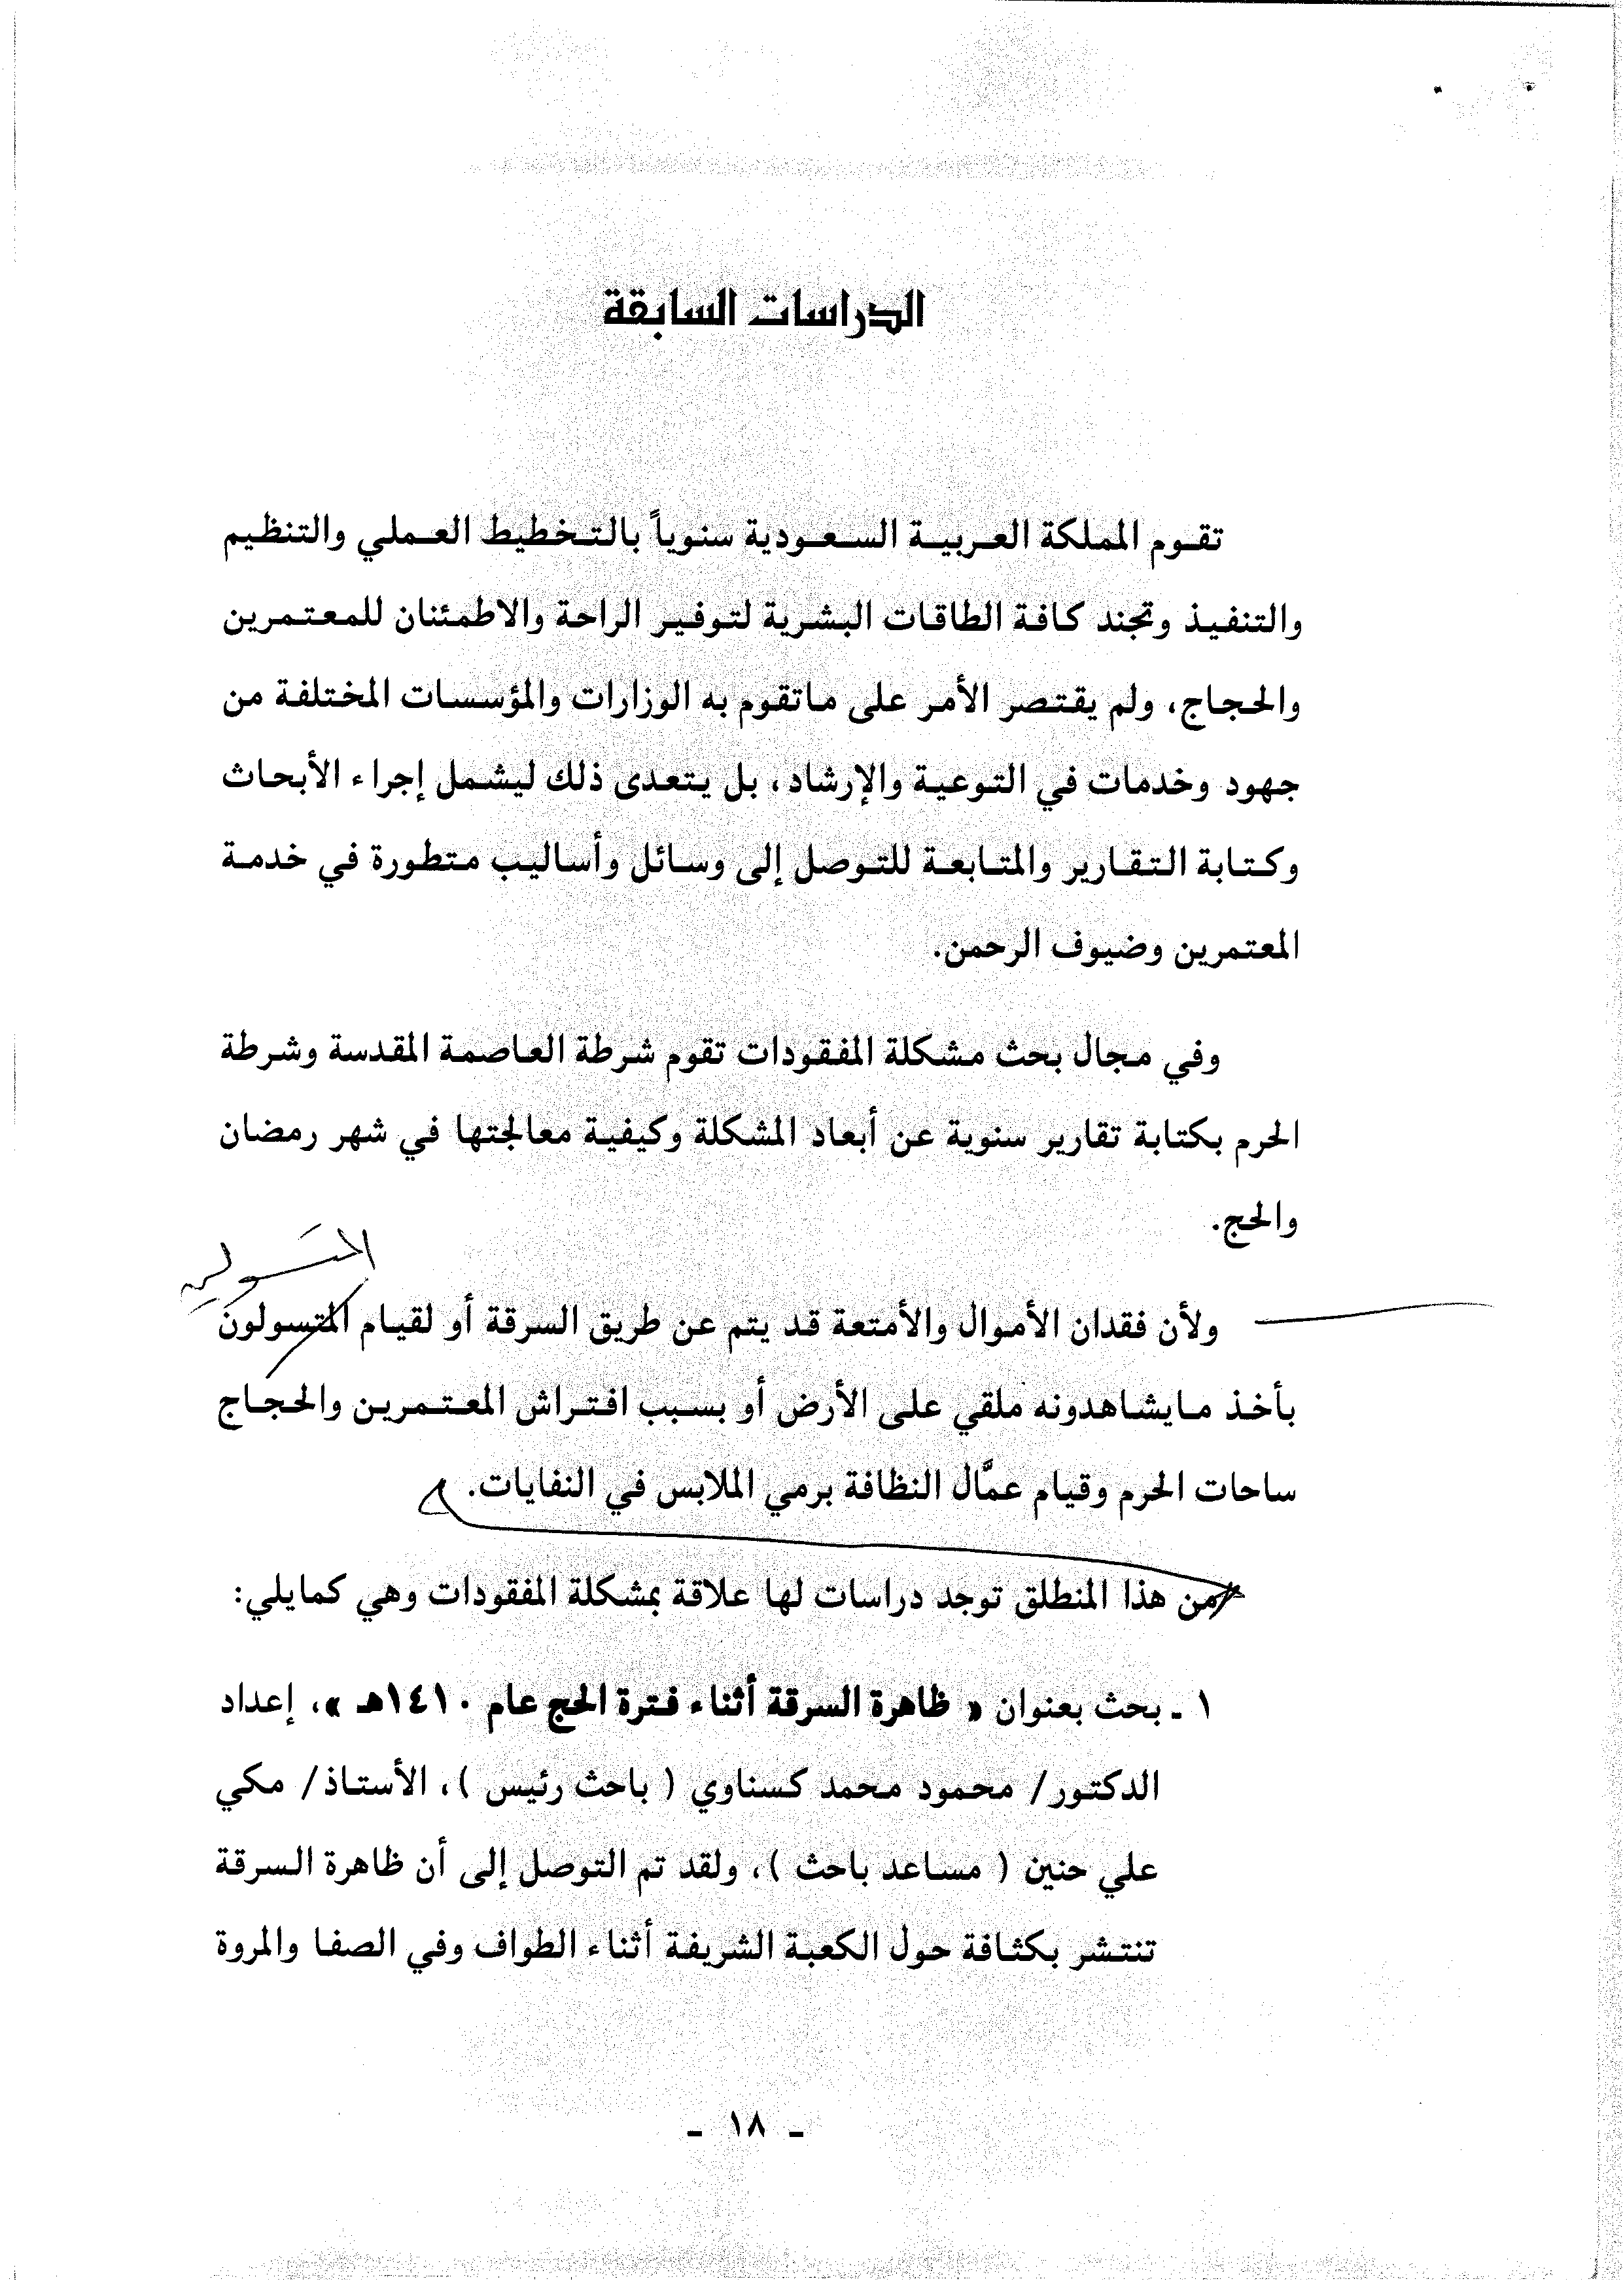 الدراسات السابقة
تقوم المملكة العربية السعودية سنوياً بالتخطيط العملي والتنظيم
والتنفيذ وتجند كافة الطاقات البشرية لتوفير الراحة والاطمئنان للمعتمرين
والحجاج، ولم يقتصر الأمر على ماتقوم به الوزارات والمؤسسات المختلفة من
جهود وخدمات في التوعية والإرشاد، بل يتعدى ذلك ليشمل إجراء الأبحاث
وكتابة التقارير والمتابعة للتوصل إلى وسائل وأساليب متطورة في خدمة
المعتمرين وضيوف الرحمن.
وفي مجال بحث مشكلة المفقودات تقوم شرطة العاصمة المقدسة وشرطة
الحرم بكتابة تقارير سنوية عن أبعاد المشكلة وكيفية معالجتها في شهر رمضان
والحج.
ولأن فقدان الأموال والأمتعة قد يتم عن طريق السرقة أو لقيام المتسولون
بأخذ مايشاهدونه ملقي على الأرض أو بسبب افتراش المعتمرين والحجاج
ساحات الحرم وقيام عمَّال النظافة برمي الملابس في النفايات.
من هذا المنطلق توجد دراسات لها علاقة بمشكلة المفقودات وهي كمايلي:
١ ـ بحث بعنوان « ظاهرة السرقة أثناء فترة الحج عام ١٤١٠هـ »، إعداد
الدكتور/ محمود محمد كسناوي ( باحث رئيس )، الأستاذ/ مكي
علي حنين ( مساعد باحث )، ولقد تم التوصل إلى أن ظاهرة السرقة
تنتشر بكثافة حول الكعبة الشريفة أثناء الطواف وفي الصفا والمروة
ـ ١٨ ـ